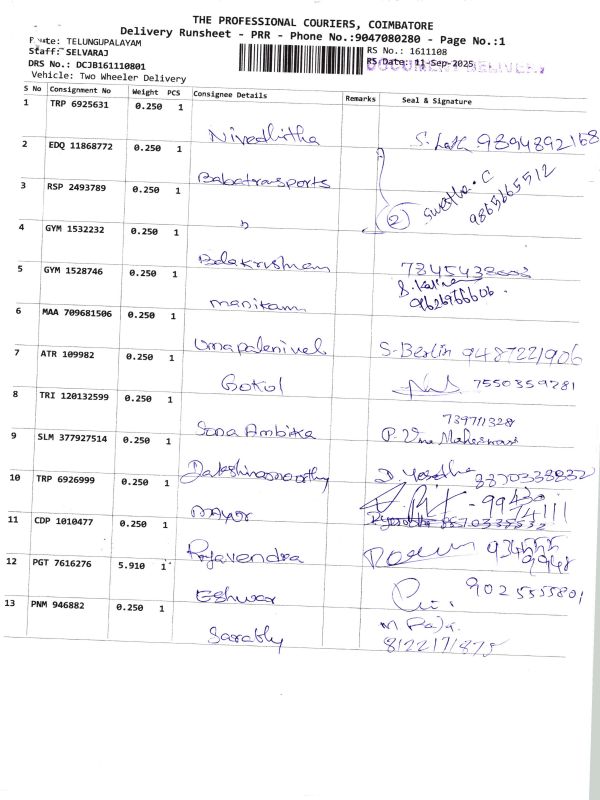 THE PROFESSIONAL COURIERS, COIMBATORE
Delivery Runsheet - PRR - Phone No.:9047080280 - Page No.:1
Route: TELUNGUPALAYAM
Staff: SELVARAJ
RS No.: 1611108
DRS No.: DCJB161110801
RS Date: 11-Sep-2025
Vehicle: Two Wheeler Delivery
S No Consignment No Weight PCS Consignee Details Remarks Seal & Signature
1 TRP 6925631 0.250 1
Nivedhitha 9894892168
2 EDQ 11868772 0.250 1
Babatransports
3 RSP 2493789 0.250 1
" 2 Swetha. C 9865665512
4 GYM 1532232 0.250 1
Balakrishnan
5 GYM 1528746 0.250 1
manikam 9626966606.
6 MAA 709681506 0.250 1
Umapalanivel S. Berlin 9487221906
7 ATR 109982 0.250 1
Gokul 7550359281
8 TRI 120132599 0.250 1
7397111328
Sona Ambika P. Uma Maheswari
9 SLM 377927514 0.250 1
Dakshinamoorthy D. Yasodha 8870338832
10 TRP 6926999 0.250 1
99430
74111
11 CDP 1010477 0.250 1
Rajavendra 934555
9948
12 PGT 7616276 5.910 1
Eshwar 9025555801
13 PNM 946882 0.250 1
M Raja.
Sarathy 8122171875